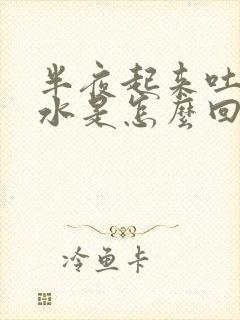 半夜起来吐
水是怎麼回
冷鱼卡